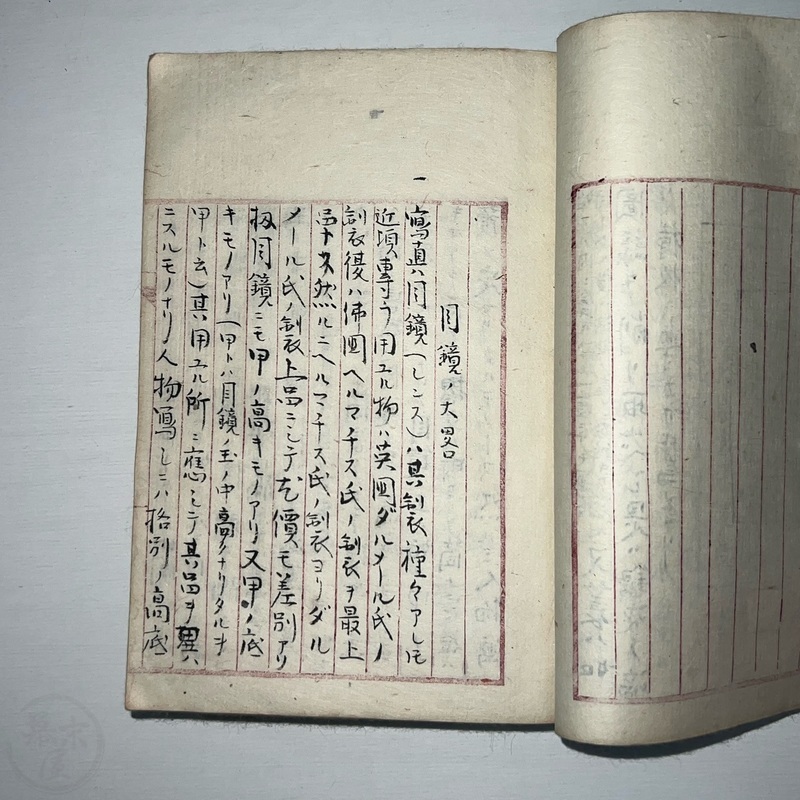 目鏡ノ大畧
一 寫真ハ目鏡(レンス)ハ其製種々アレ𪜈
近頃專ラ用ユル物ハ英國ダルメール氏ノ
製後ハ佛國ヘルマチス氏ノ製ヲ最上
品ナス然ルニヘルマチス氏ノ製ヨリダル
メール氏ノ製上品ニシテ尤價モ差別アリ
扨目鏡ニモ甲ノ高キモノアリ又甲ノ底
キモノアリ(甲トハ目鏡ノ玉ノ中高クナリタルヲ
甲ト云)其用ユル所ニ應シテ其品ヲ異ハ
ニスルモノナリ人物寫シニハ格別ノ高底
幕末屋